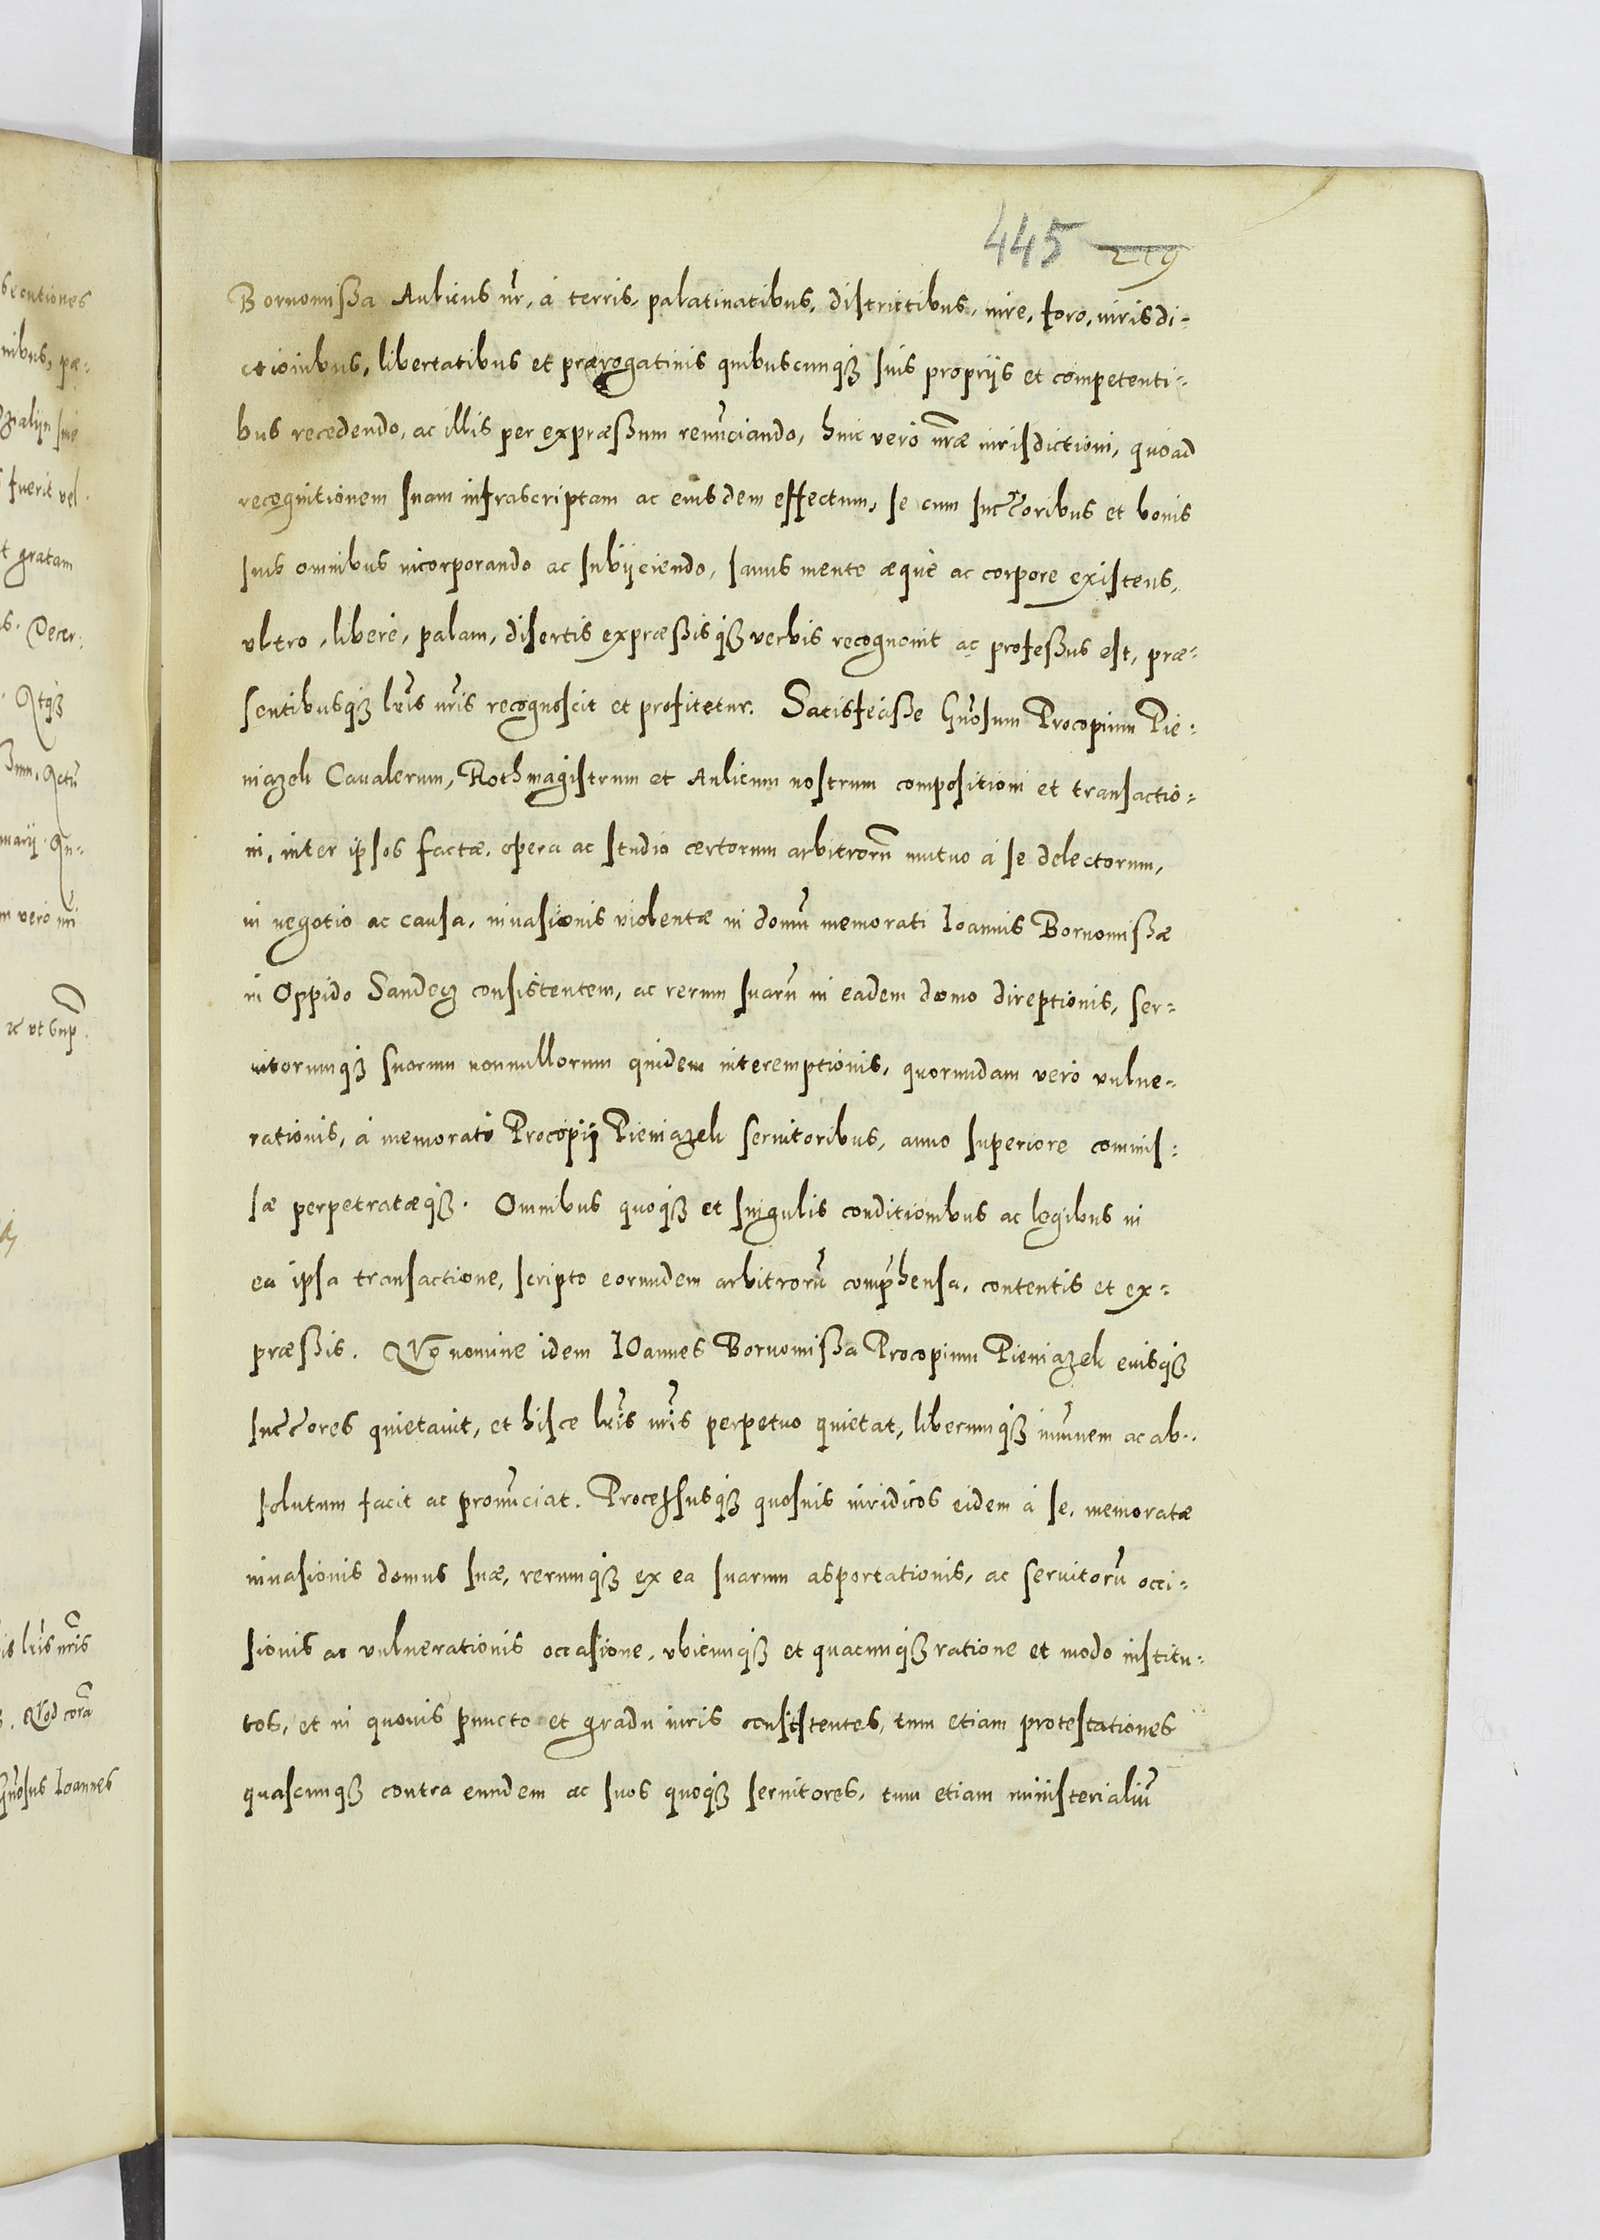 445 219
Bornomißa Aulicus nr̃, à terris, palatinatibus, districtibus, iure, foro, iurisdi-
ctionibus, libertatibus et prærogatiuis quibuscunqꝫ suis proprijs et competenti-
bus recedendo, ac illis per expræßum renũciando, huic vero nr̃æ iurisdictioni, quoad
recognitionem suam infrascriptam ac eiusdem effectum, se cum succ̃oribus et bonis
suis omnibus incorporando ac subijciendo, sanus mente æquè ac corpore existens,
vltro, liberè, palam, disertis expræßisqꝫ verbis recognouit ac profeßus est, præ-
sentibusqꝫ lr̃is nr̃is recognoscit et profitetur. Satisfeciße Gñosum Procopium Pie-
niazek Caualerum, Rothmagistrum et Aulicum nostrum compositioni et transactio-
ni, inter ipsos factæ, opera ac studio certorum arbitrorũ mutuo à se delectorum,
in negotio ac causa, inuasionis violentæ in domũ memorati Ioannis Bornomißæ
in Oppido Sandecz consistentem, ac rerum suarũ in eadem domo direptionis, ser-
uitorumqꝫ suorum nonnullorum quidem interemptionis, quorundam vero vulne-
rationis, à memorato Procopij Pieniazek seruitoribus, anno superiore commis-
sæ perpetratæqꝫ. Omnibus quoqꝫ et singulis conditionibus ac legibus in
ea ipsa transactione, scripto eorundem arbitrorũ comp̃hensa, contentis et ex-
præßis. Quo nomine idem IOannes Bornomißa Procopium Pieniazek eiusqꝫ
succ̃ores quietauit, et hisce lr̃is nr̃is perpetuo quietat, liberumqꝫ imũnem ac ab-
solutum facit ac pronũciat. Processusqꝫ quosuis iuridicos eidem à se, memoratæ
inuasionis domus suæ, rerumqꝫ ex ea suarum asportationis, ac seruitorũ occi-
sionis ac vulnerationis occasione, vbicunqꝫ et quacunqꝫ ratione et modo institu-
tos, et in quouis puncto et gradu iuris consistentes, tum etiam protestationes
quascunqꝫ contra eundem ac suos quoqꝫ seruitores, tum etiam ministerialiũ